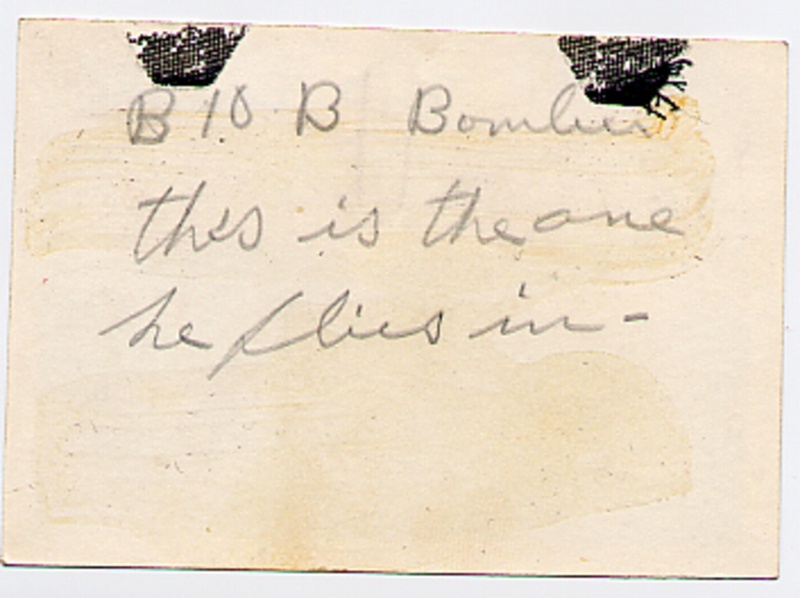 B 10 B Bomber
this is the one
he flies in -